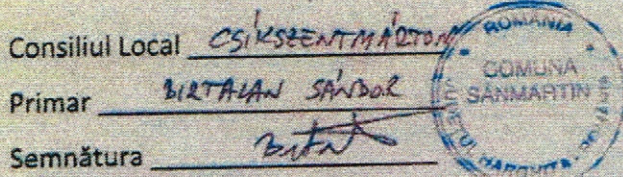 Consiliul Local CSÍKSZENTMÁRTON
Primar BIRTALAN SÁNDOR
Semnătura
ROMÂNIA
COMUNA
SÂNMARTIN
HARGHITA